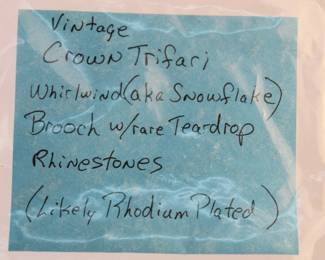 Vintage
Crown Trifari
Whirlwind (aka Snowflake)
Brooch w/rare Teardrop
Rhinestones
(Likely Rhodium Plated)